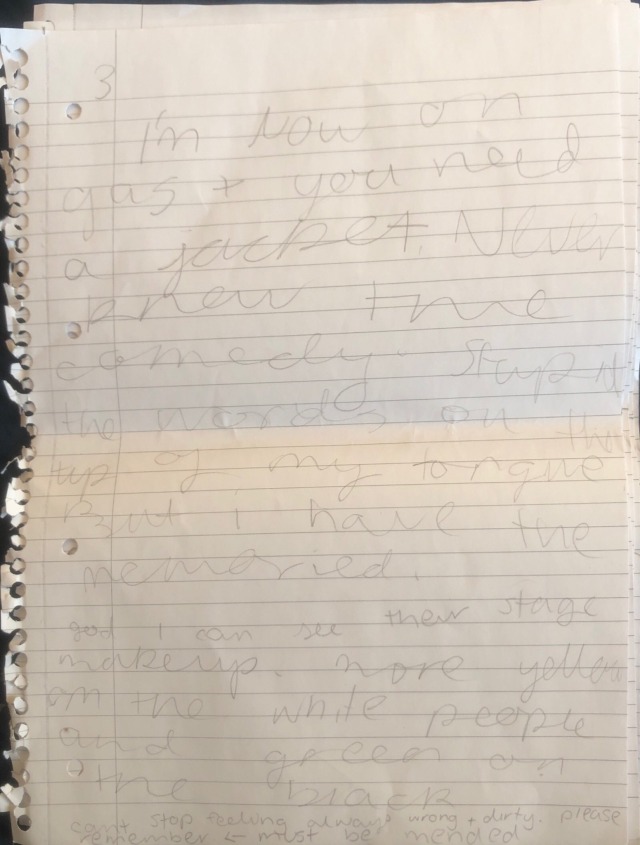 3
I'm now on
gas + you need
a jacket. Never
knew the
comedy. Stupid
the words on the
tip of my tongue
But i have the
memoried.
god i can see their stage
makeup. more yellow
on the white people
and green on
the black
can't stop feeling always wrong + dirty. please
remember ← must be mended